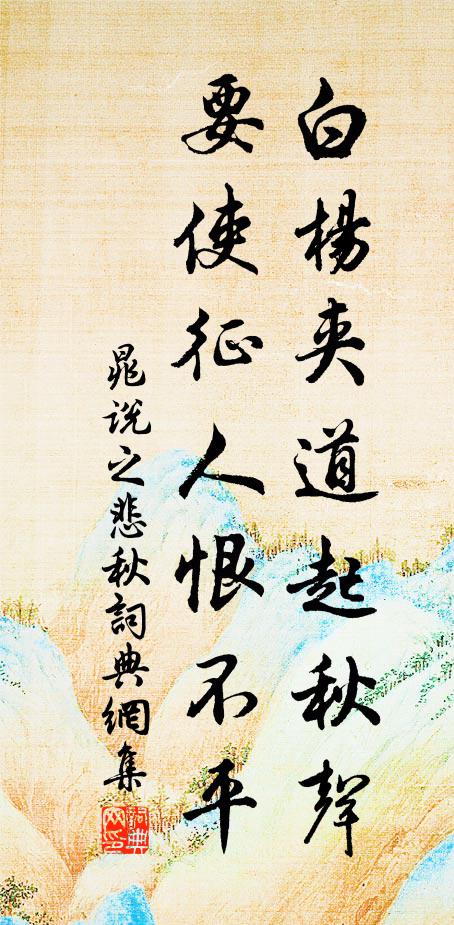 白楊夾道起秋聲
要使征人恨不平
晁说之悲秋詞典網集
詞典
网印